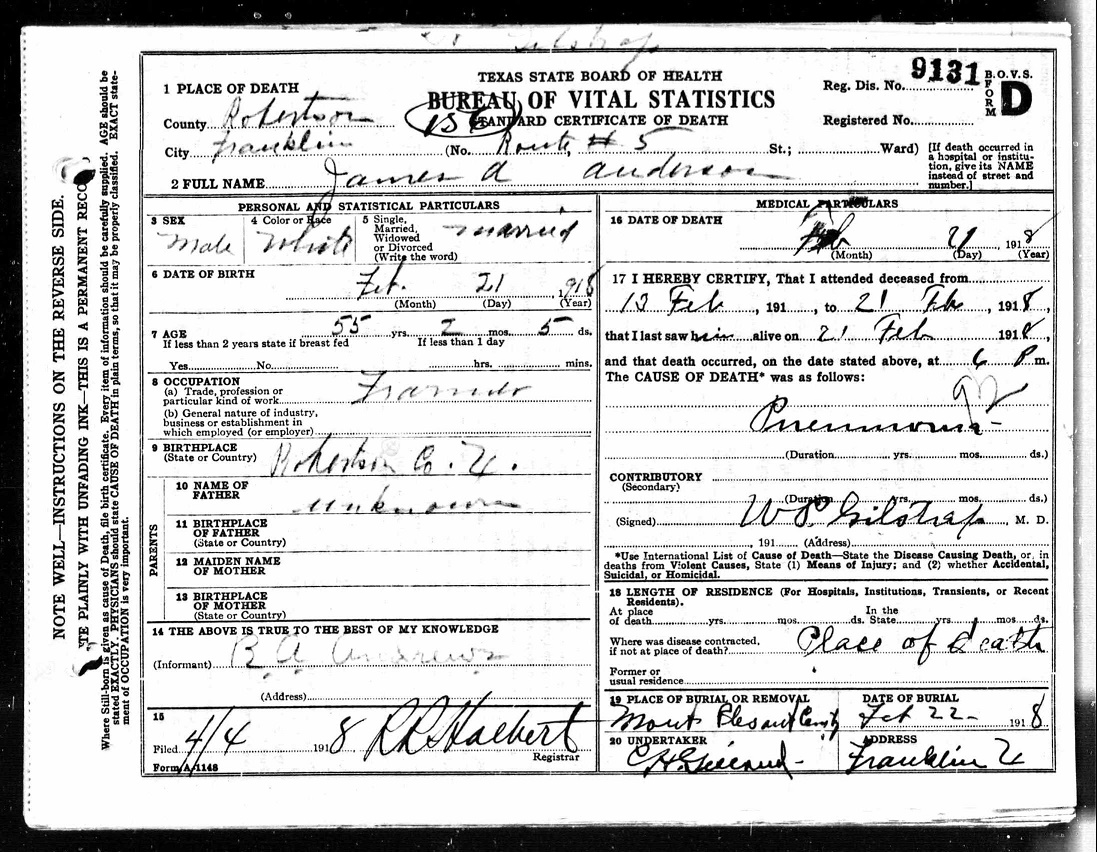 Gilstrap
TEXAS STATE BOARD OF HEALTH
BUREAU OF VITAL STATISTICS
STANDARD CERTIFICATE OF DEATH
Reg. Dis. No. 9131
B.O.V.S. FORM D
Registered No.
1 PLACE OF DEATH
County Robertson
City Franklin (No. Route # 5 St.; Ward)
[If death occurred in
a hospital or institu-
tion, give its NAME
instead of street and
number.]
2 FULL NAME James A Anderson
PERSONAL AND STATISTICAL PARTICULARS
3 SEX
Male
4 Color or Race
White
5 Single,
Married,
Widowed
or Divorced
(Write the word)
married
6 DATE OF BIRTH
Feb. 21 1918
(Month) (Day) (Year)
7 AGE 55 yrs. 2 mos. 5 ds.
If less than 2 years state if breast fed If less than 1 day
Yes No hrs. mins.
8 OCCUPATION
(a) Trade, profession or
particular kind of work
(b) General nature of industry,
business or establishment in
which employed (or employer)
9 BIRTHPLACE
(State or Country) Robertson Co.
PARENTS
10 NAME OF
FATHER unknown
11 BIRTHPLACE
OF FATHER
(State or Country)
12 MAIDEN NAME
OF MOTHER
13 BIRTHPLACE
OF MOTHER
(State or Country)
14 THE ABOVE IS TRUE TO THE BEST OF MY KNOWLEDGE
(Informant) R A Andrews
(Address)
15
Filed 4/4 1918 R R Halbert
Registrar
Form A-1148
MEDICAL PARTICULARS
16 DATE OF DEATH
Feb 21 1918
(Month) (Day) (Year)
17 I HEREBY CERTIFY, That I attended deceased from
13 Feb, 191 , to 21 Feb, 1918,
that I last saw him alive on 21 Feb 1918,
and that death occurred, on the date stated above, at 6 P m.
The CAUSE OF DEATH* was as follows:
92
Pneumonia
(Duration yrs. mos. ds.)
CONTRIBUTORY
(Secondary)
(Duration yrs. mos. ds.)
(Signed) Gilstrap, M. D.
, 191 (Address)
*Use International List of Cause of Death—State the Disease Causing Death, or, in
deaths from Violent Causes, State (1) Means of Injury; and (2) whether Accidental,
Suicidal, or Homicidal.
18 LENGTH OF RESIDENCE (For Hospitals, Institutions, Transients, or Recent
Residents).
At place In the
of death yrs. mos. ds. State yrs. mos. ds.
Where was disease contracted,
if not at place of death? Place of death
Former or
usual residence
19 PLACE OF BURIAL OR REMOVAL
DATE OF BURIAL
Feb 22 1918
20 UNDERTAKER
ADDRESS
Franklin
NOTE WELL—INSTRUCTIONS ON THE REVERSE SIDE.
TE PLAINLY WITH UNFADING INK—THIS IS A PERMANENT RECO
Where Still-born is given as cause of Death, file birth certificate. Every item of information should be carefully supplied. AGE should be
stated EXACTLY. PHYSICIANS should state CAUSE OF DEATH in plain terms, so that it may be properly classified. EXACT state-
ment of OCCUPATION is very important.